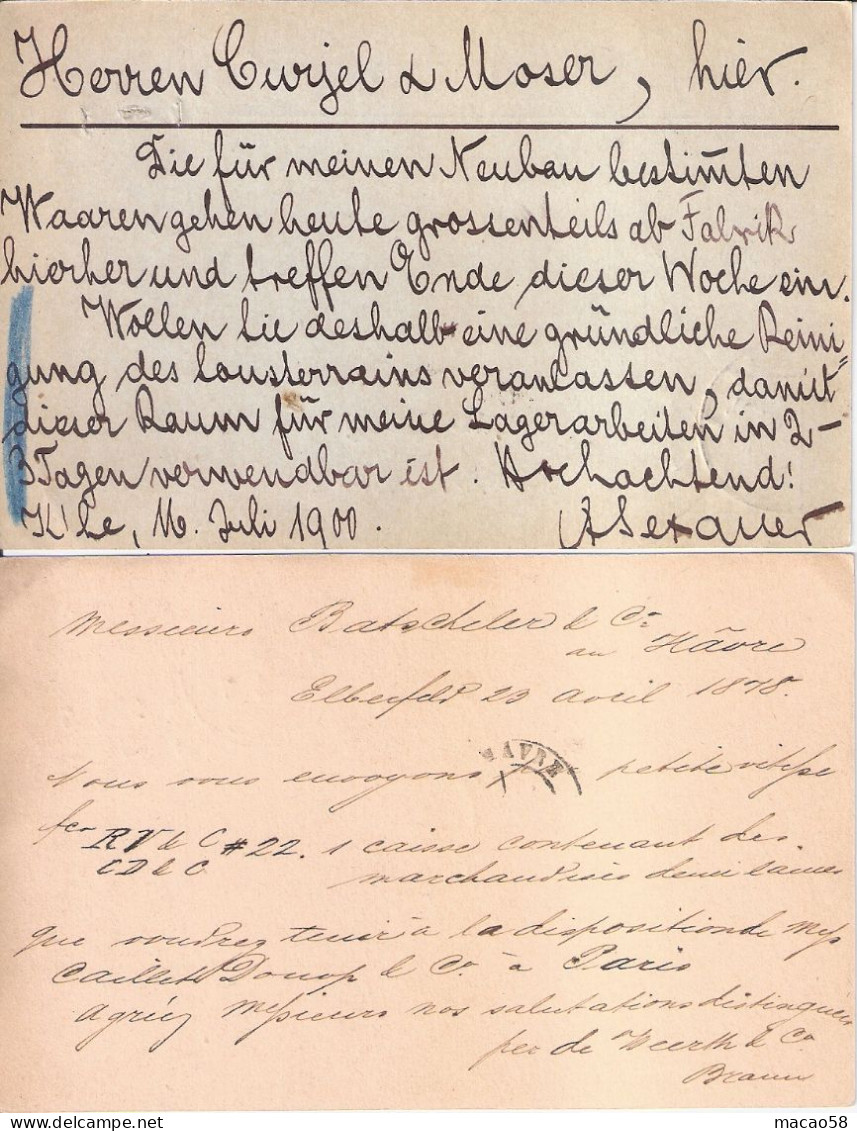 Herren Curjel & Moser, hier.
Die für meinen Neubau bestim̅ten
Waaren gehen heute grossenteils ab Fabrik
hierher und treffen Ende dieser Woche ein.
Wollen Sie deshalb eine gründliche Reini-
gung des Sousterrains veranlassen, damit
dieser Raum für meine Lagerarbeiten in 2-
3 Tagen verwendbar ist. Hochachtend!
K'he, 16. Juli 1900. A Sexauer
Messieurs Batscheler & Co
au Hâvre
Elberfeld 23 avril 1878.
Nous vous envoyons par petite vitesse
HAVRE
fco RV & C #22. 1 caisse contenant des
CD & C marchandises demi laines
que voudrez tenir à la disposition de Mess
Caillet Donop & Co à Paris
Agréez Messieurs nos salutations distinguées
per de Weerth & Co
Braun
macao58